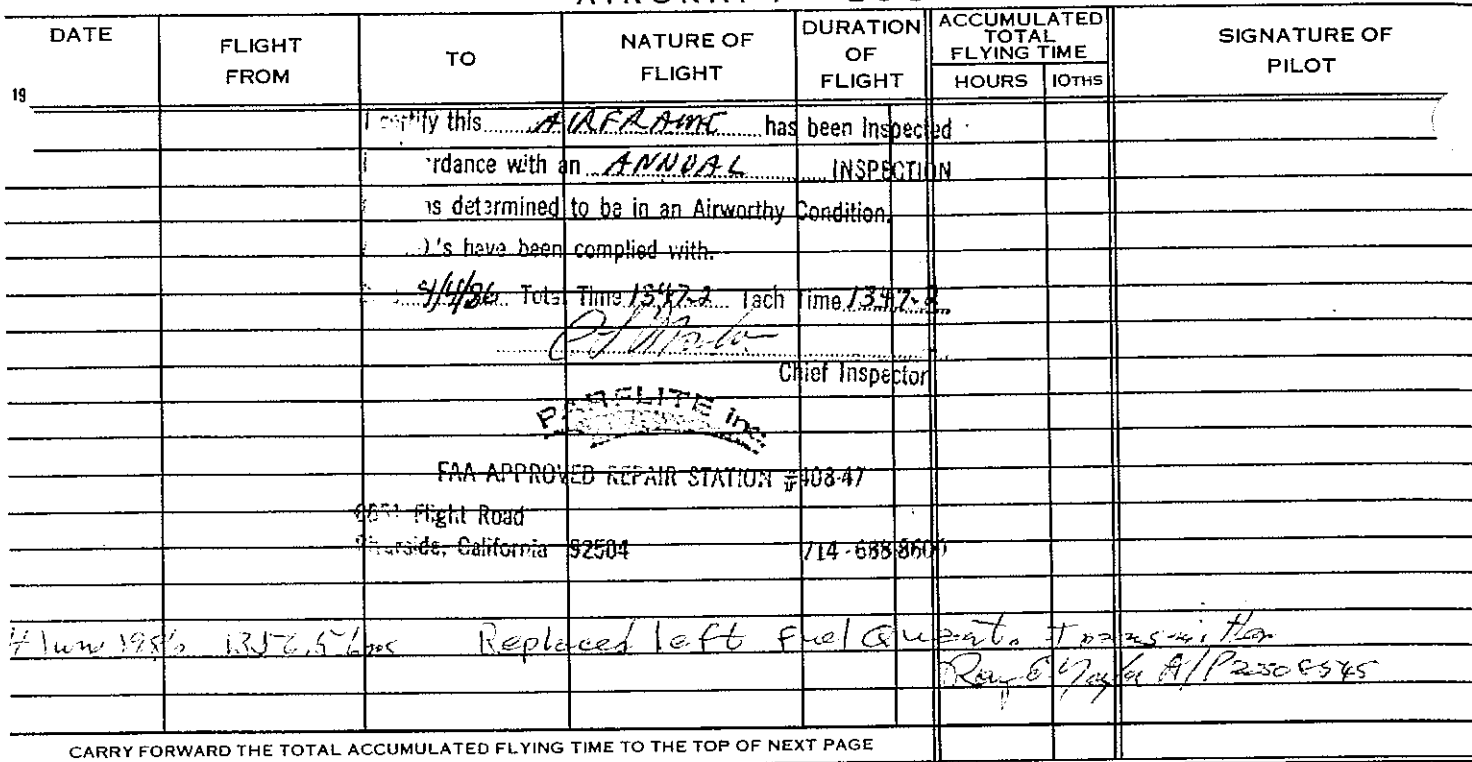 DATE
FLIGHT FROM
TO
NATURE OF FLIGHT
DURATION OF FLIGHT
ACCUMULATED TOTAL FLYING TIME
HOURS
10THS
SIGNATURE OF PILOT
19
I certify this AIRFRAME has been Inspected
rdance with an ANNUAL INSPECTION
is determined to be in an Airworthy Condition.
)'s have been complied with.
4/4/86 Total Time 1347.2 Tach Time 1347.2
Chief Inspector
PARFLITE inc.
FAA APPROVED REPAIR STATION #408-47
Flight Road
Riverside, California 92504 714-688-8600
4 June 1986 1356.5 hrs Replaced left Fuel Quant. Transmitter
Ray E A/P
CARRY FORWARD THE TOTAL ACCUMULATED FLYING TIME TO THE TOP OF NEXT PAGE